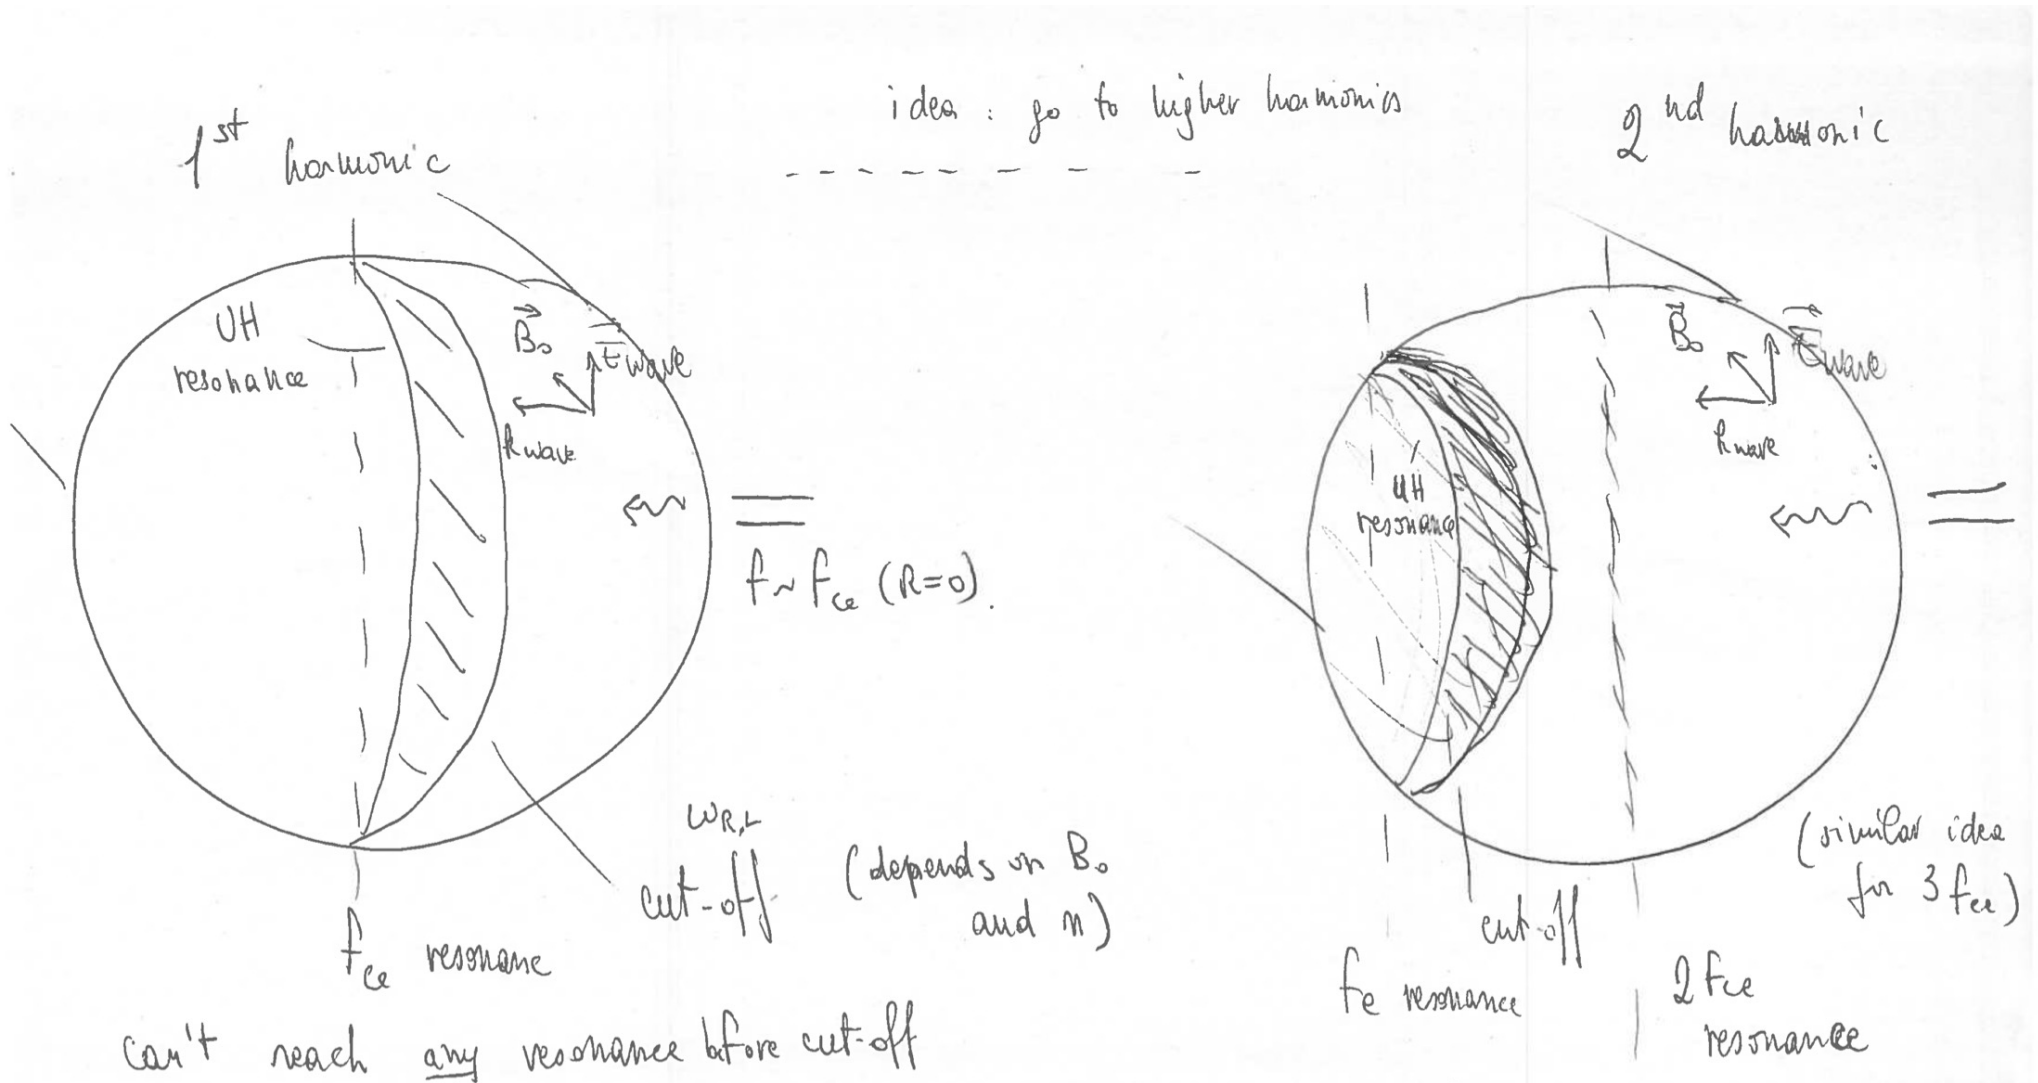 idea : go to higher harmonics
1st harmonic
2nd harmonic
UH
resonance
B₀
E wave
k wave
f ~ fce (R=0).
ωR,L
cut-off
(depends on B₀
and n)
fce resonance
can't reach any resonance before cut-off
B₀
E wave
k wave
UH
resonance
(similar idea
for 3 fce)
cut-off
fe resonance
2 fce
resonance